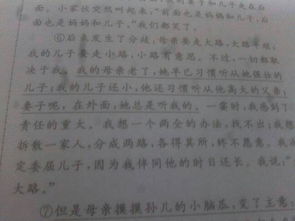 面，小家伙突然叫起来："前面也是妈妈和儿子，后
面也是妈妈和儿子。"我们都笑了。
⑥后来发生了分歧：母亲要走大路，大路平顺；
我的儿子要走小路，小路有意思。不过，一切都取
决于我。我的母亲老了，她早已习惯听从她强壮的
儿子；我的儿子还小，他还习惯听从他高大的父亲；
妻子呢，在外面，她总是听我的。一霎时，我感到了
责任的重大。我想一个两全的办法，找不出；我想
拆散一家人，分成两路，各得其所，终不愿意。我决
定委屈儿子，因为我伴同他的时日还长。我说："走
大路。"
⑦但是母亲摸摸孙儿的小脑瓜，变了主意：